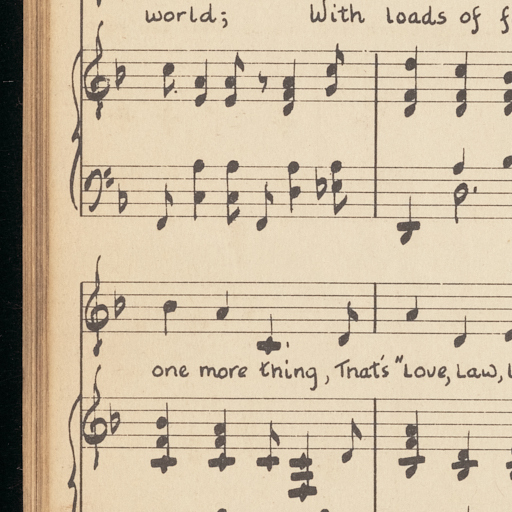 world; With loads of
one more thing, That's "Love, Law,